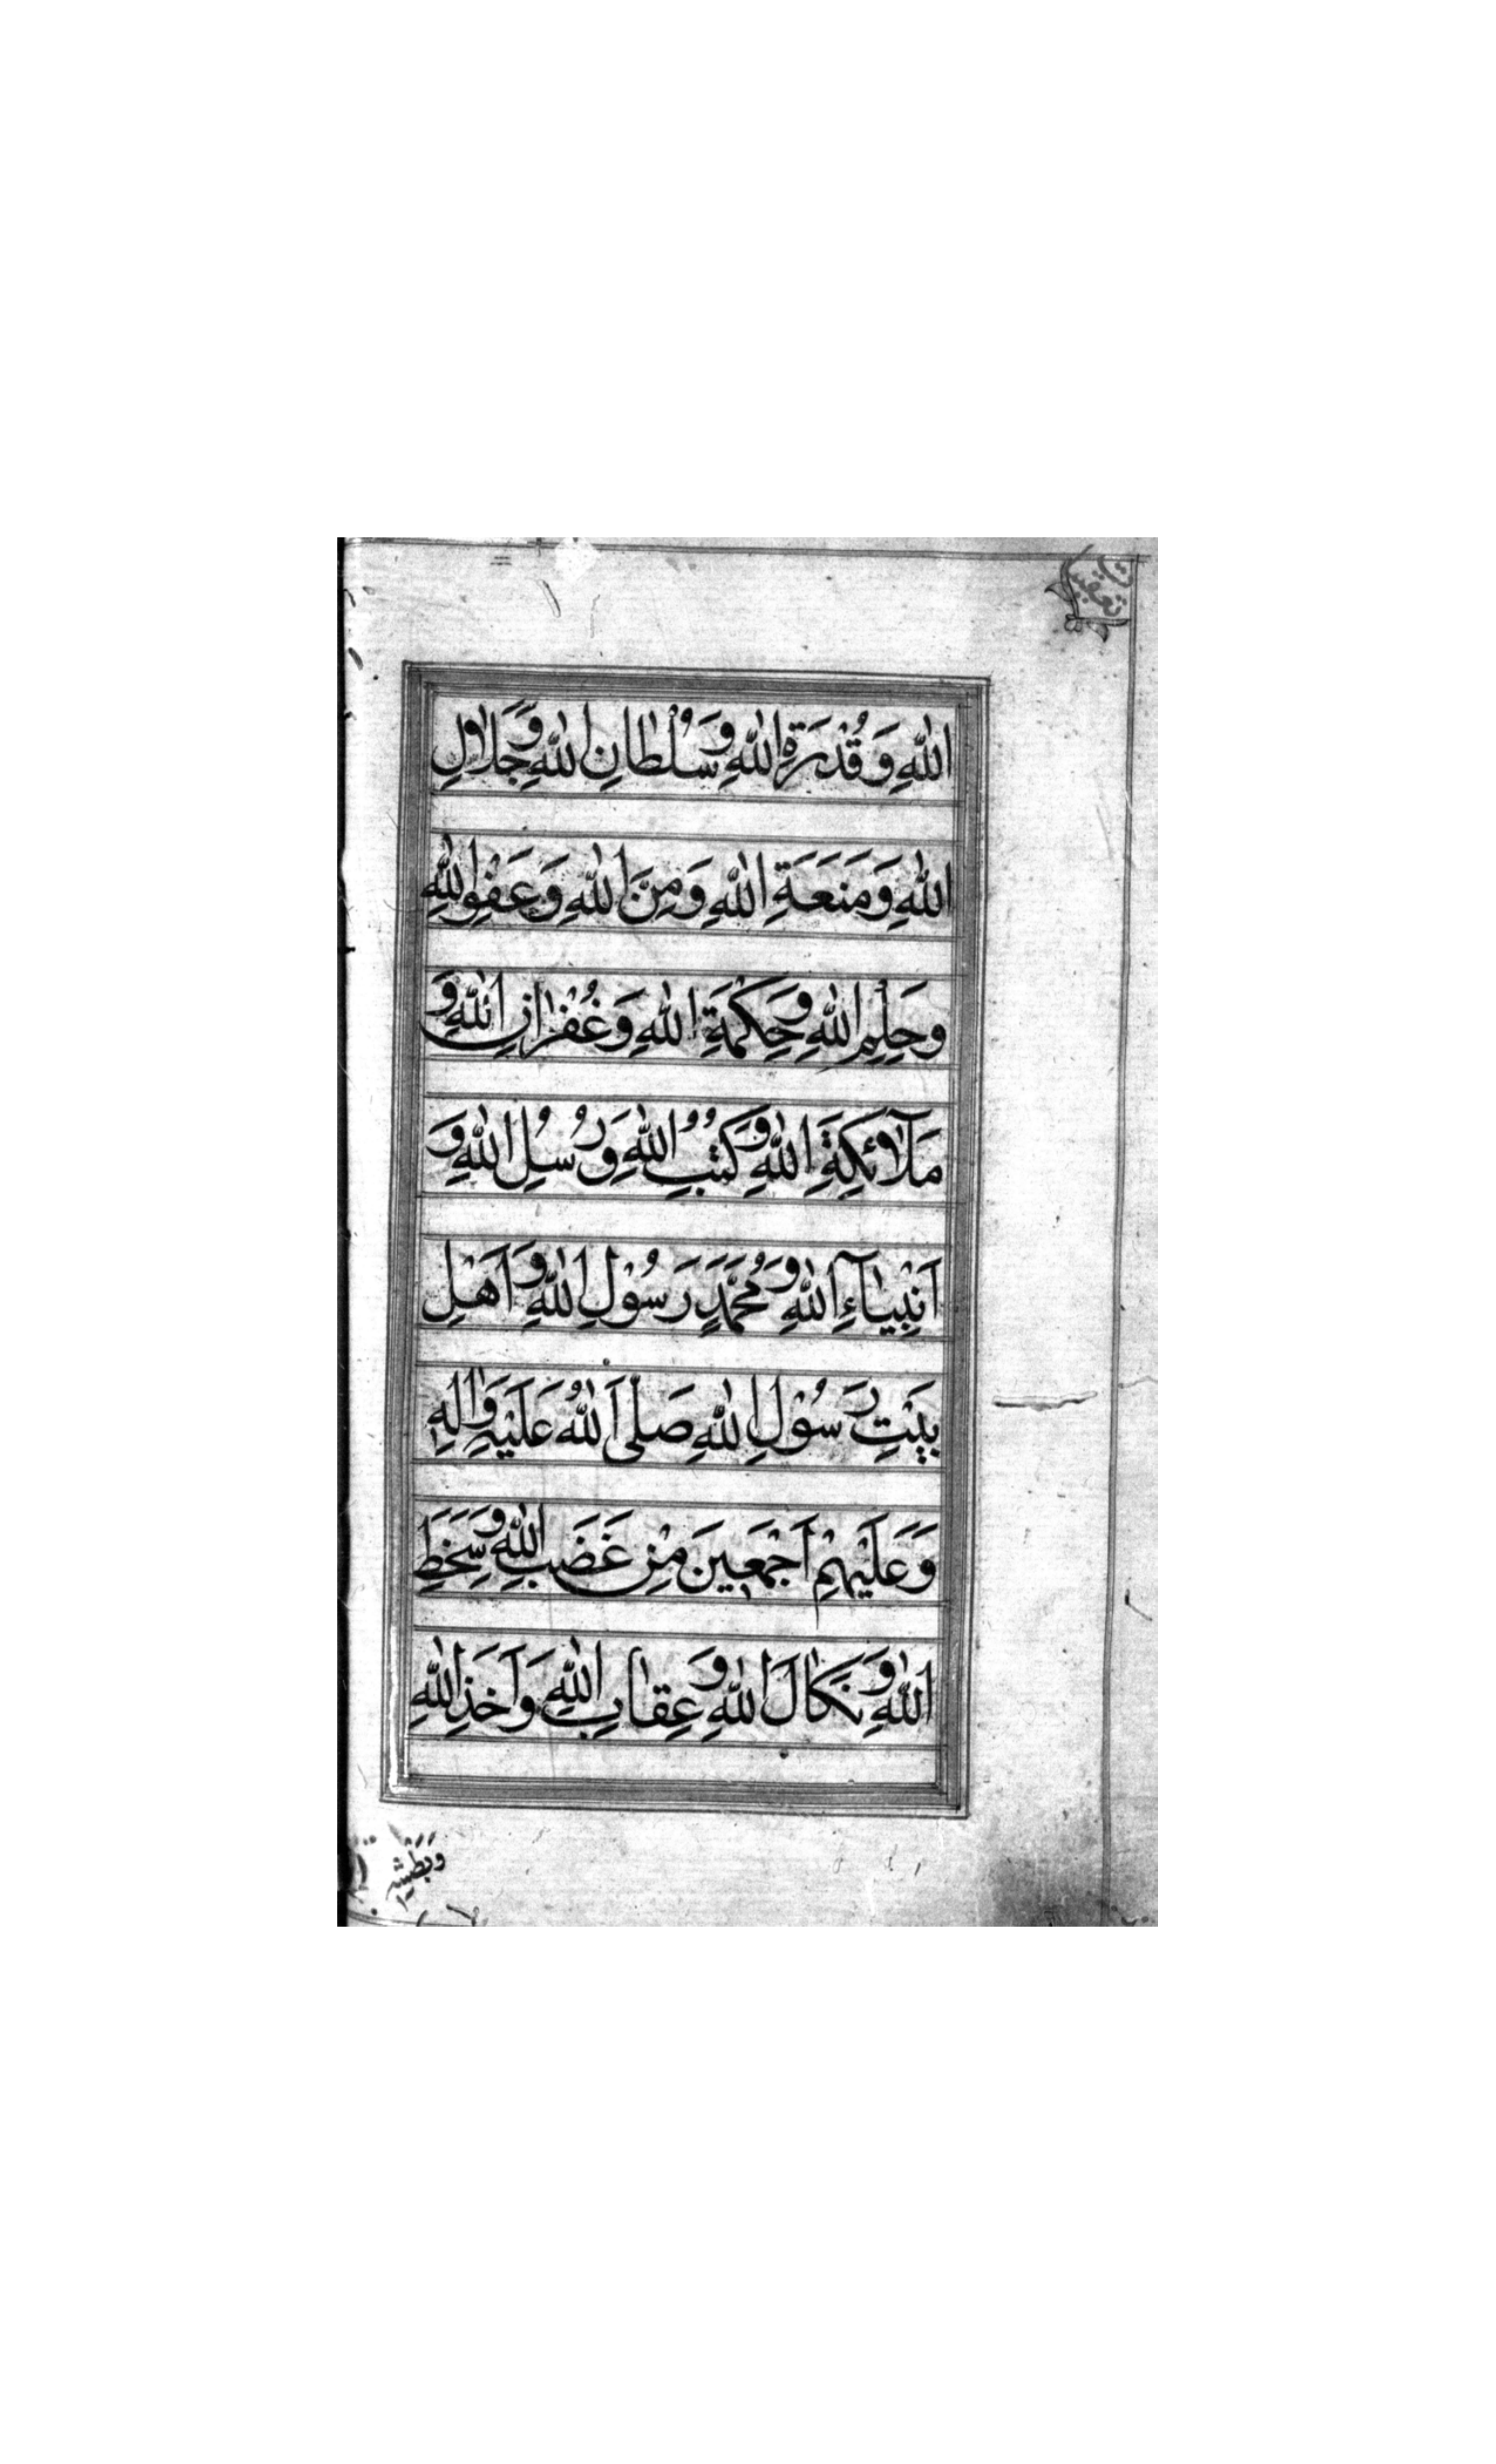 تعقيبات
اللهِ وَقُدْرَةِ اللهِ وَسُلْطَانِ اللهِ وَجَلَالِ
اللهِ وَمَنَعَةِ اللهِ وَمِنَ اللهِ وَعَفْوِ اللهِ
وَحِلِيْمِ اللهِ وَحِكْمَةِ اللهِ وَغُفْرَانِ اللهِ وَ
مَلَآئِكَةِ اللهِ وَكُتُبِ اللهِ وَرُسُلِ اللهِ وَ
اَنْبِيَآءِ اللهِ وَمُحَمَّدٍ رَسُوْلِ اللهِ وَاَهْلِ
بَيْتِ رَسُوْلِ اللهِ صَلَّى اَللهُ عَلَيْهِ وَاٰلِهِ
وَعَلَيْهِمْ اَجْمَعِينَ مِنْ غَضَبِ اللهِ وَسَخَطِ
اللهِ وَنَكَالَ اللهِ وَعِقَابِ اللهِ وَاَخْذِ اللهِ
وبطش